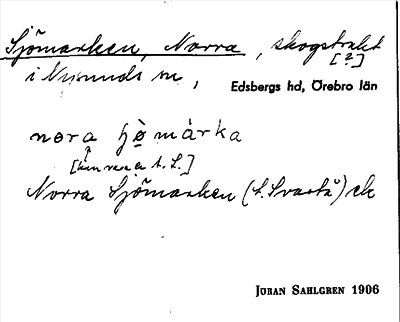 Sjömarken, Norra, skogstrakt
[?]
i Nysunds sn,
Edsbergs hd, Örebro län
nora ʃø̀márka
[kan vara t. S.]
Norra Sjömarken (t. Svartå) ek
JÖRAN SAHLGREN 1906